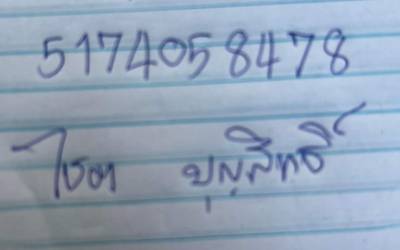 5174058478
ไชยา บุญสิทธิ์